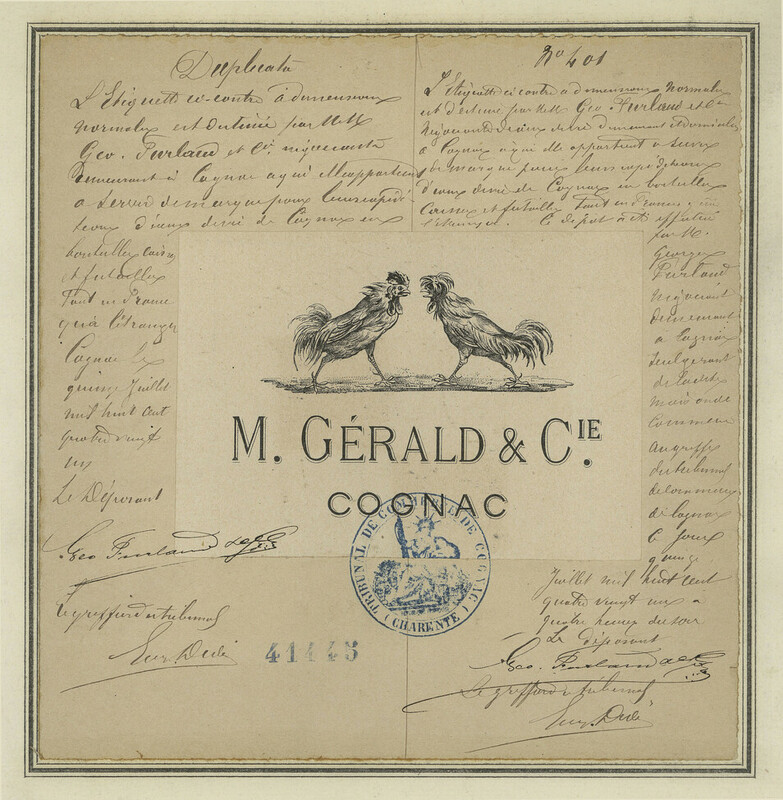 Duplicata
L'Etiquette ci-contre à dimensions
normales est destinée par MM
Geo. Purland et Cie négociants
demeurant à Cognac à qui elle appartient
à servir de marque pour leurs expédi-
tions d'eaux de vie de Cognac en
bouteilles caisses
et futailles
Tant en France
qu'à l'étranger
Cognac le
quinze Juillet
mil huit cent
quatre vingt
un
Le Déposant
Geo Purland & Cie
Le greffier du tribunal
No 401
L'Etiquette ci-contre à dimensions normales
est destinée par MM Geo. Purland et Cie
négociants d'eaux de vie demeurant et domiciliés
à Cognac à qui elle appartient à servir
de marque pour leurs expéditions
d'eaux de vie de Cognac en bouteilles
Caisses et futailles Tant en France qu'à
l'étranger. Le dépôt a été effectué
par M.
Georges
Purland
négociant
demeurant
à Cognac
seul gérant
de la dite
maison de
Commerce
au greffe
du tribunal
de Commerce
de Cognac
le jour
quinze
Juillet mil huit cent
quatre vingt un à
quatre heures du soir
Le déposant
Geo. Purland & Cie
Le greffier du tribunal
M. GÉRALD & CIE.
COGNAC
TRIBUNAL DE COMMERCE DE COGNAC
(CHARENTE)
41445